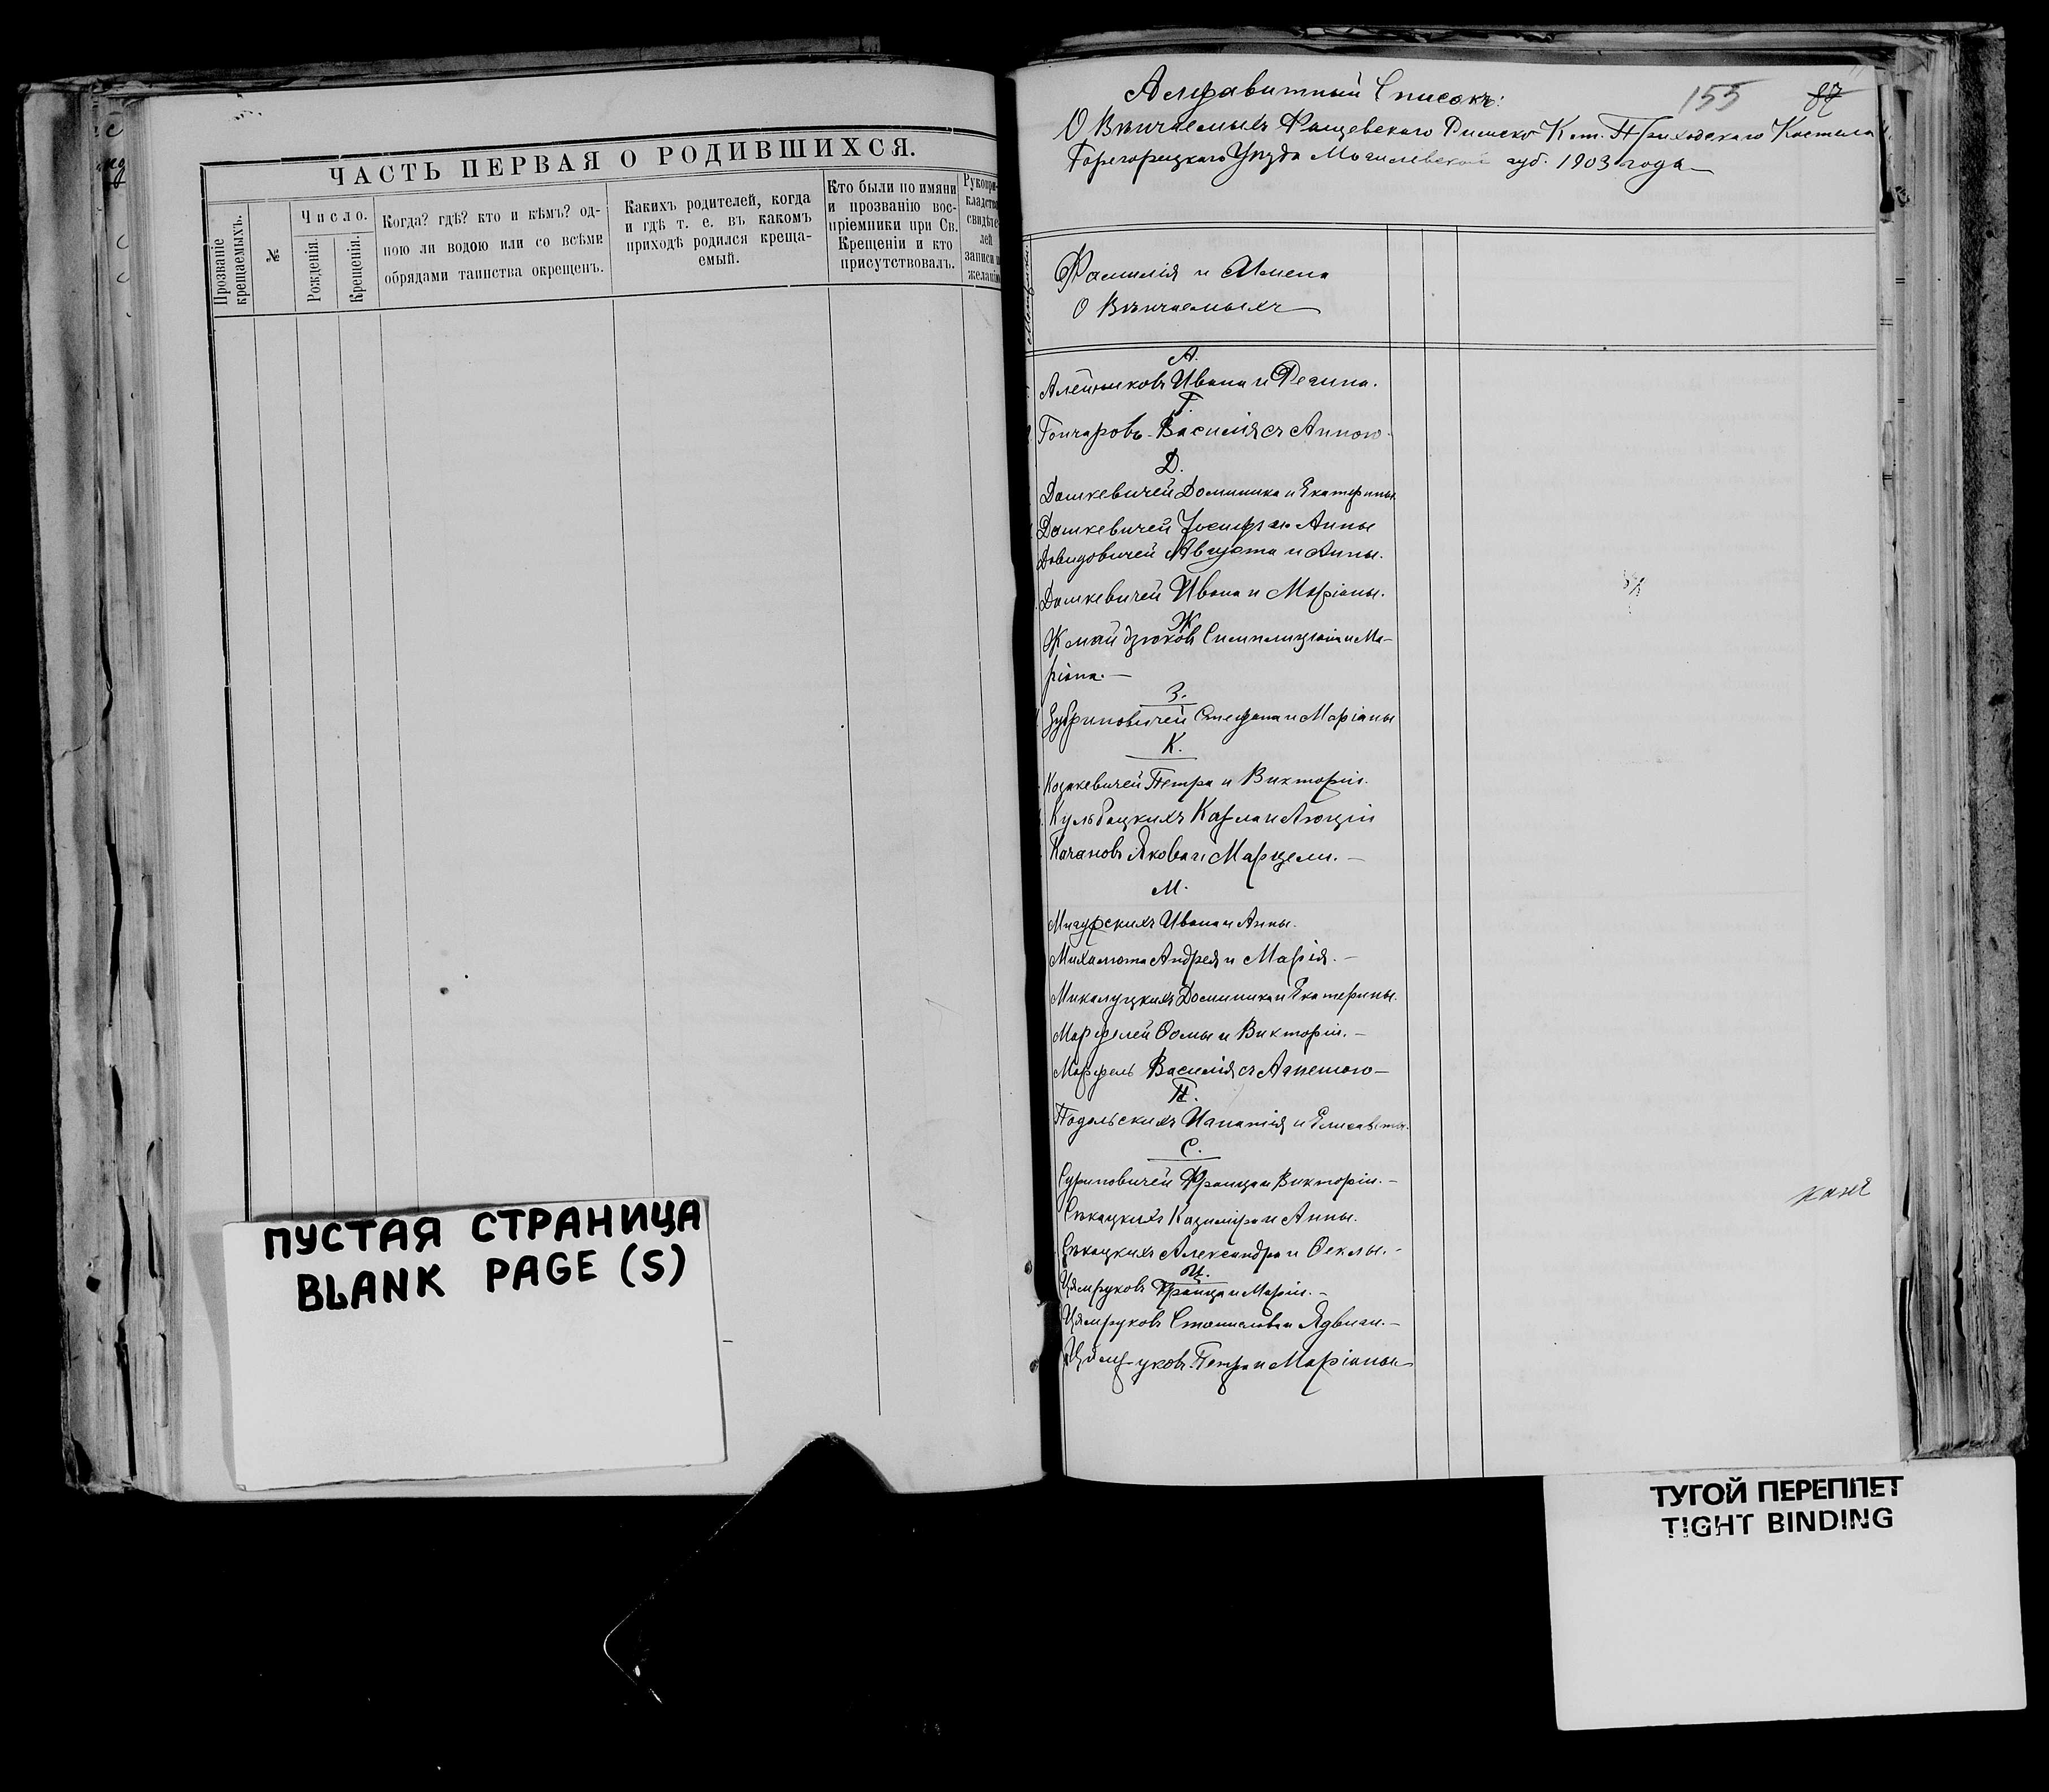 ЧАСТЬ ПЕРВАЯ О РОДИВШИХСЯ.
Прозваніе крещаемыхъ.
№
Число.
Рожденія.
Крещенія.
Когда? гдѣ? кто и кѣмъ? од-
ною ли водою или со всѣми
обрядами таинства окрещенъ.
Какихъ родителей, когда
и гдѣ т. е. въ какомъ
приходѣ родился креща-
емый.
Кто были по имяни
и прозванію вос-
пріемники при Св.
Крещеніи и кто
присутствовалъ.
Рукопри-
кладство
свидѣте-
лей
записи
желанію
ПУСТАЯ СТРАНИЦА
BLANK PAGE (S)
Алфавитный Списокъ:
155
87
О Вѣнчаемыхъ Фащевского Римско-Кат. Приходскаго Костела
Горегорецкаго Уѣзда Могилевской губ. 1903 года
Фамилія и Имена
О Вѣнчаемыхъ
А.
Алейниковъ Ивана и Регина.
Г.
Гончаровъ Василія съ Анною
Д.
Дашкевичей Доминика и Екатерины
Дашкевичей Іосифа и Анны
Давидовичей Августа и Анны.
Дашкевичей Ивана и Маріаны.
Ж
Жмайдзюковъ Симплиціана и Ма-
ріана.
З.
Зубриновичей Стефана и Маріаны
К.
Козакевичей Петра и Викторіи.
Кульбацкихъ Карла и Люціи
Качановъ Якова и Марцели.
М.
Мигурскихъ Ивана и Анны.
Михалюта Андрея и Марія.
Микалуцкихъ Доминика и Екатерины.
Марфелей Ѳомы и Викторіи.
Марфель Василія съ Агнетою
П.
Подольскихъ Игнатія и Елисаветы.
С.
Суриновичей Франца и Викторіи.
Сѣкацкихъ Казиміра и Анны.
Сѣкацкихъ Александра и Ѳеклы.
Ц.
Цямруковъ Франца и Маріи.
Цямруковъ Станислава и Ядвиги.
Цямруковъ Петра и Маріаны
ТУГОЙ ПЕРЕПЛЕТ
TIGHT BINDING